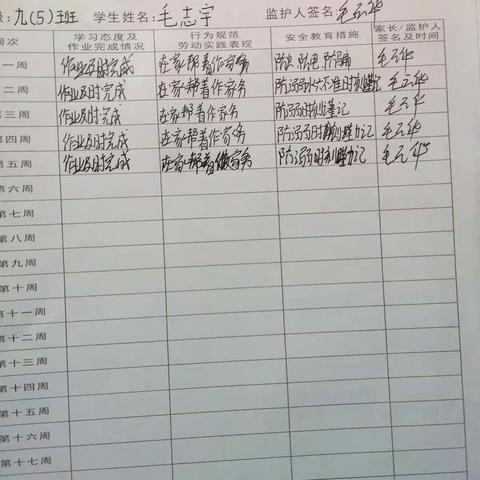 级:九(5)班 学生姓名:毛志宇 监护人签名:毛云华
周次 学习态度及作业完成情况 行为规范劳动实践表现 安全教育措施 家长/监护人签名及时间
一周 作业及时完成 在家帮着作家务 毛云华
第二周 作业及时完成 在家帮着作家务 毛云华
第三周 作业及时完成 在家帮着作家务 防溺时刻谨记 毛云华
第四周 作业及时完成 在家帮着作家务 毛云华
第五周 作业及时完成 在家帮着做家务 毛云华
第六周
第七周
第八周
第九周
第十周
第十一周
第十二周
第十三周
第十四周
第十五周
第十六周
第十七周